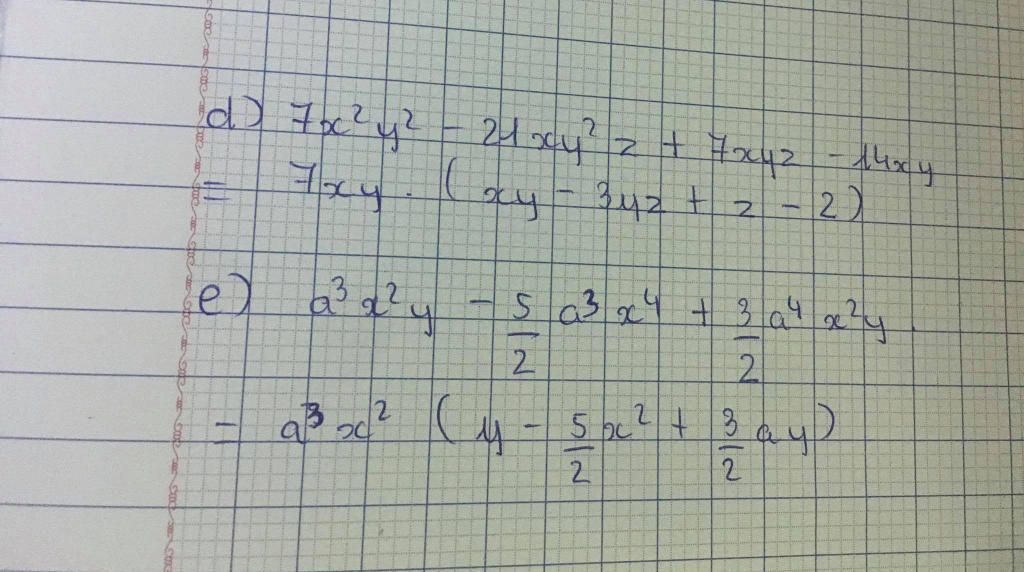 d) 7x²y² - 21xy²z + 7xyz - 14xy
= 7xy . (xy - 3yz + z - 2)
e) a³x²y - 5/2 a³x⁴ + 3/2 a⁴x²y
= a³x² (y - 5/2 x² + 3/2 ay)